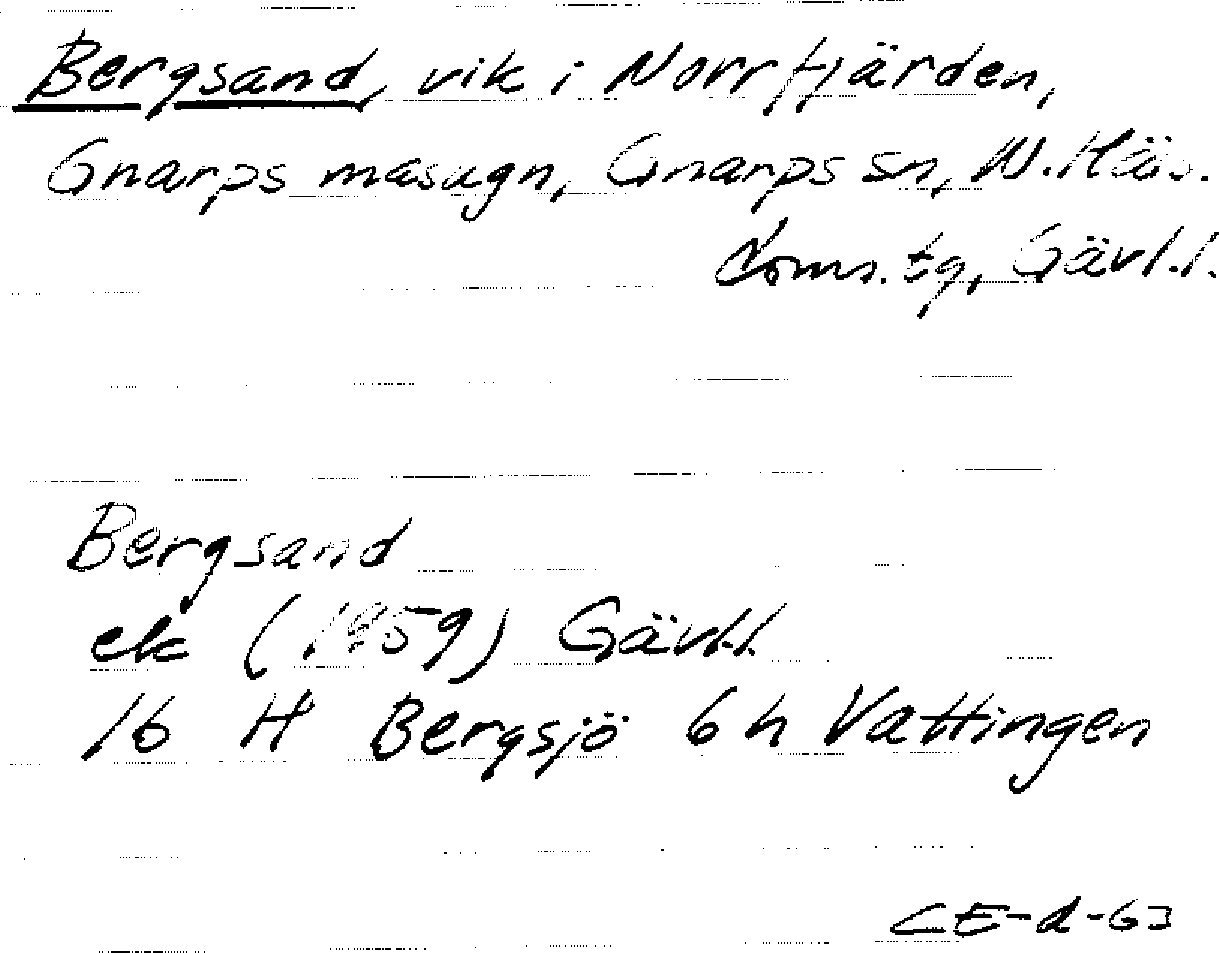 Bergsand, vik i Norrfjärden,
Gnarps masugn, Gnarps sn, N. Häls.
doms. tg, Gävl.l.
Bergsand
ek (1959) Gävl.l.
16 H Bergsjö 6h Vattingen
CE-d-63